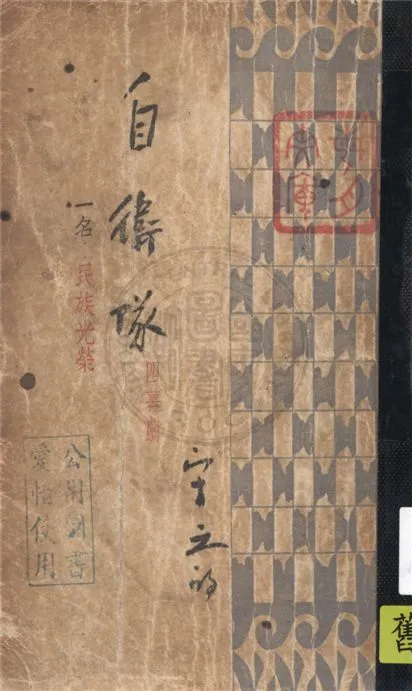 自衛隊
四幕劇
宋之的
一名 民族光榮
公用圖書
愛惜使用
舊